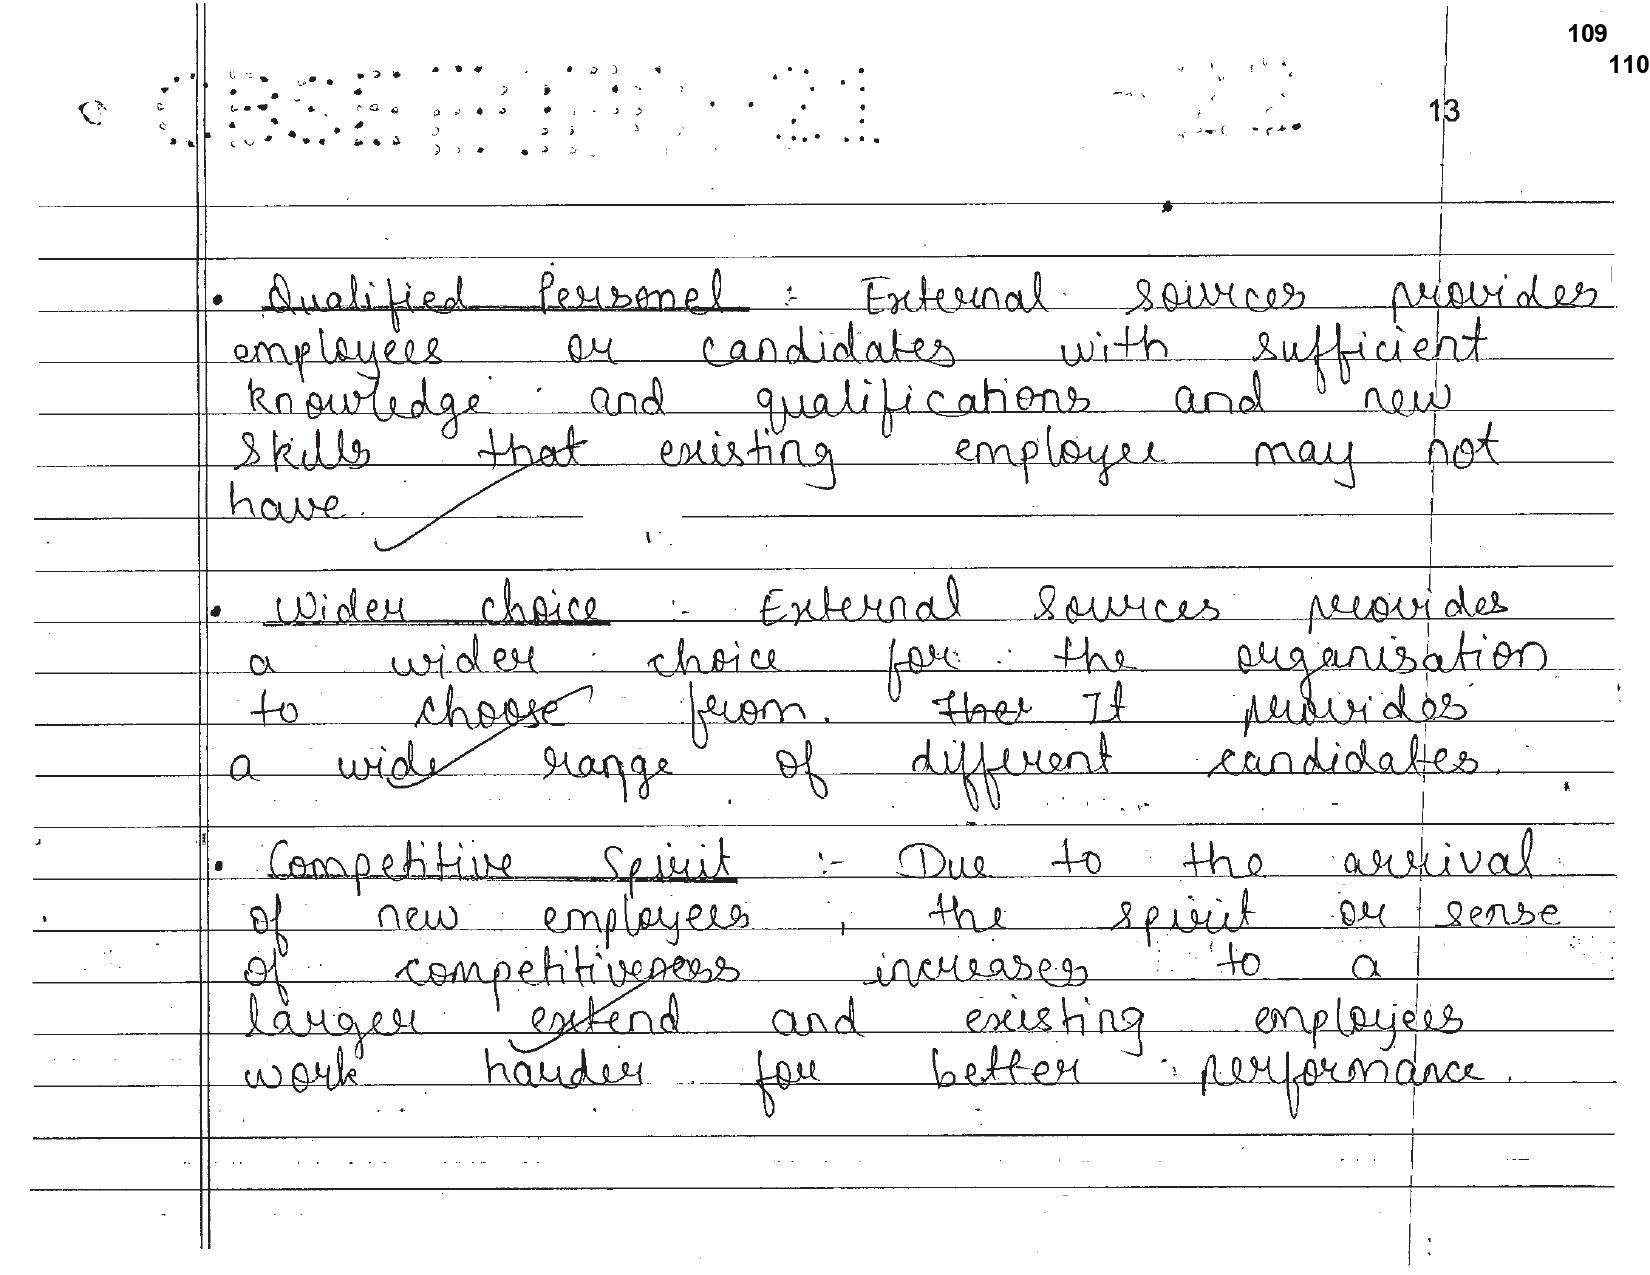 109
110
13
• Qualified Personel :- External sources provides
employees or candidates with sufficient
knowledge and qualifications and new
skills that existing employee may not
have.
• Wider choice :- External sources provides
a wider choice for the organisation
to choose from. Ther It provides
a wide range of different candidates.
• Competitive Spirit :- Due to the arrival
of new employees, the spirit or sense
of competitiveness increases to a
larger extend and existing employees
work harder for better performance.